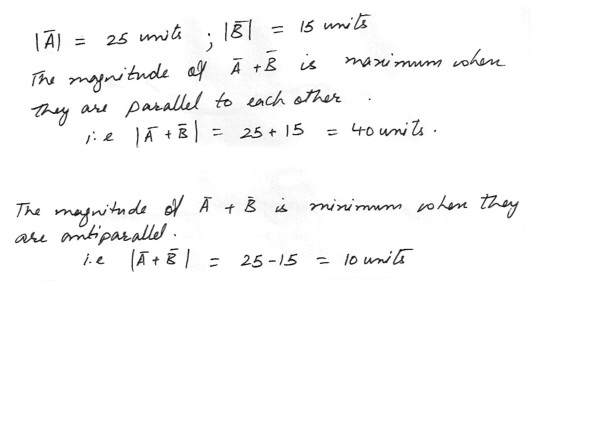 |A̅| = 25 units ; |B̅| = 15 units
The magnitude of A̅ + B̅ is maximum when
they are parallel to each other .
i.e |A̅ + B̅| = 25 + 15 = 40 units .
The magnitude of A̅ + B̅ is minimum when they
are antiparallel .
i.e |A̅ + B̅| = 25 - 15 = 10 units